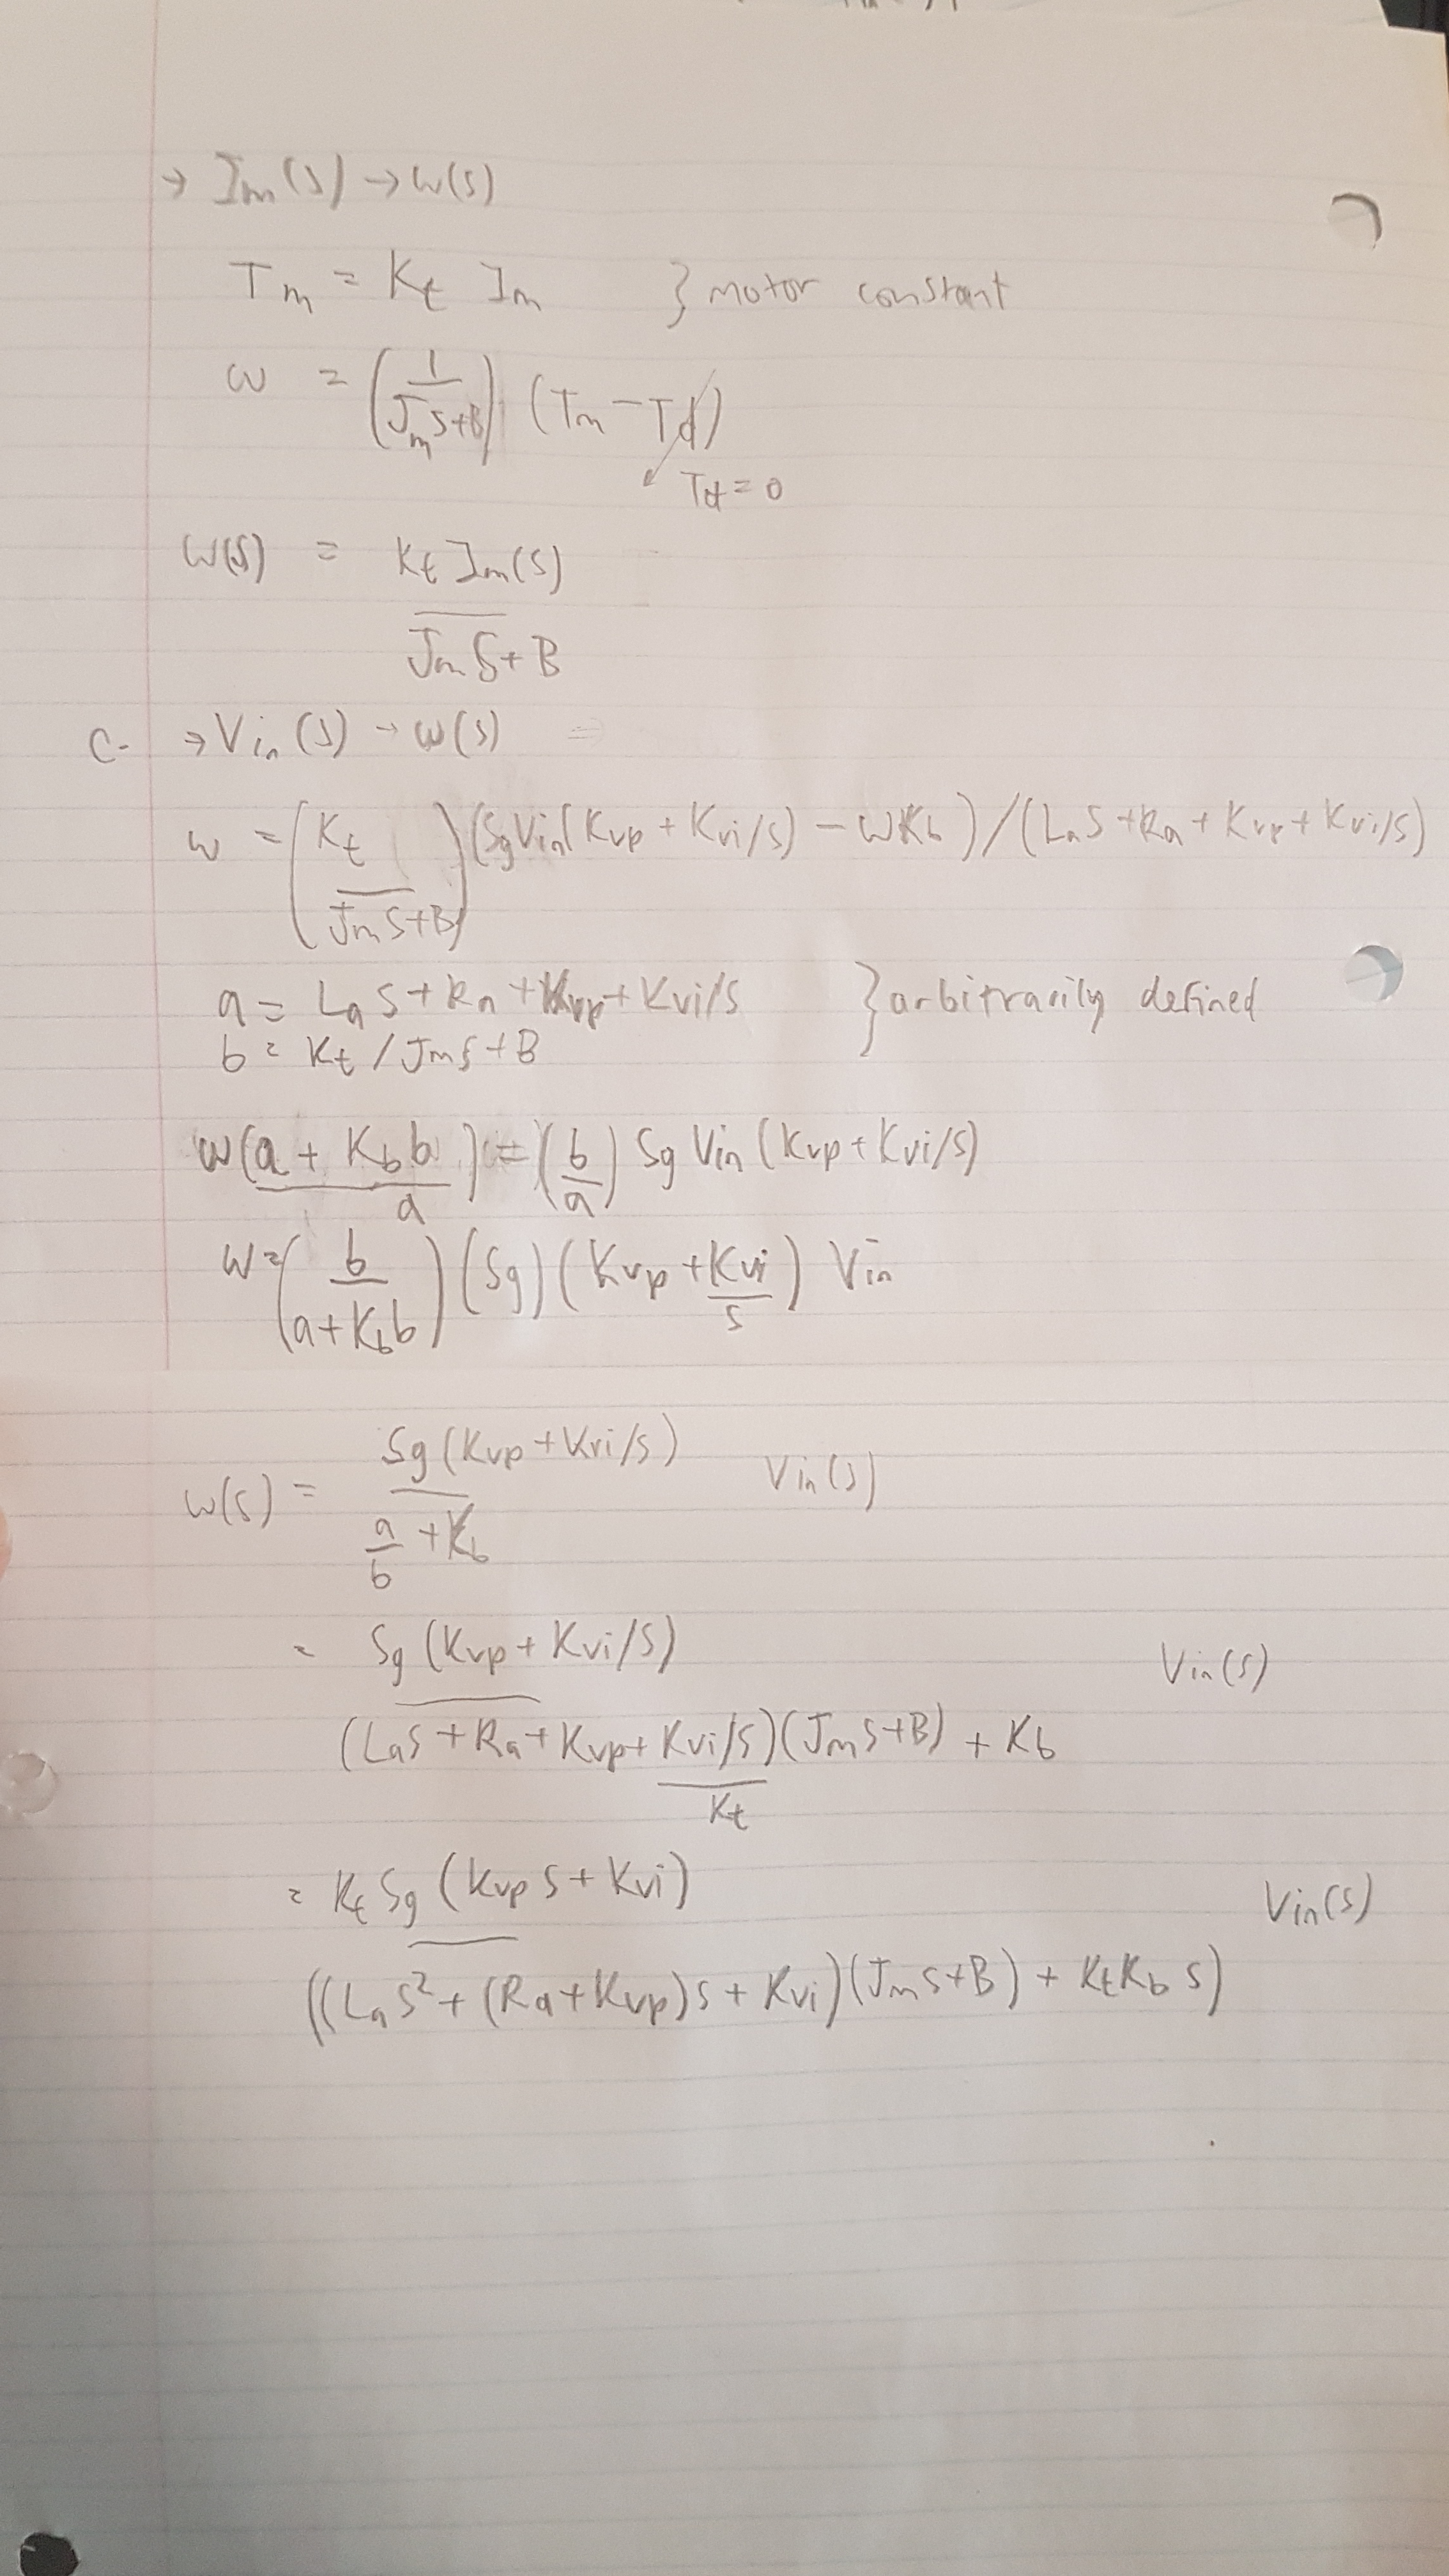 → Im(s) → ω(s)
Tm = Kt Im } motor constant
ω = (1/(Jm s+B)) (Tm − Td)
Td = 0
ω(s) = Kt Im(s)
Jm s + B
C- → Vin(s) → ω(s)
ω = (Kt/(Jm s+B)) (Sg Vin(Kvp + Kvi/s) − ωKb)/(La s + Ra + Kvp + Kvi/s)
a = La s + Ra + Kvp + Kvi/s } arbitrarily defined
b = Kt / Jm s + B
ω((a + Kb b)/a) = (b/a) Sg Vin (Kvp + Kvi/s)
ω = (b/(a+Kb b)) (Sg) (Kvp + Kvi/s) Vin
ω(s) = Sg (Kvp + Kvi/s) Vin(s)
a/b + Kb
= Sg (Kvp + Kvi/s) Vin(s)
(La s + Ra + Kvp + Kvi/s)(Jm s + B) + Kb
Kt
= Kt Sg (Kvp s + Kvi) Vin(s)
((La s² + (Ra + Kvp)s + Kvi)(Jm s + B) + Kt Kb s)